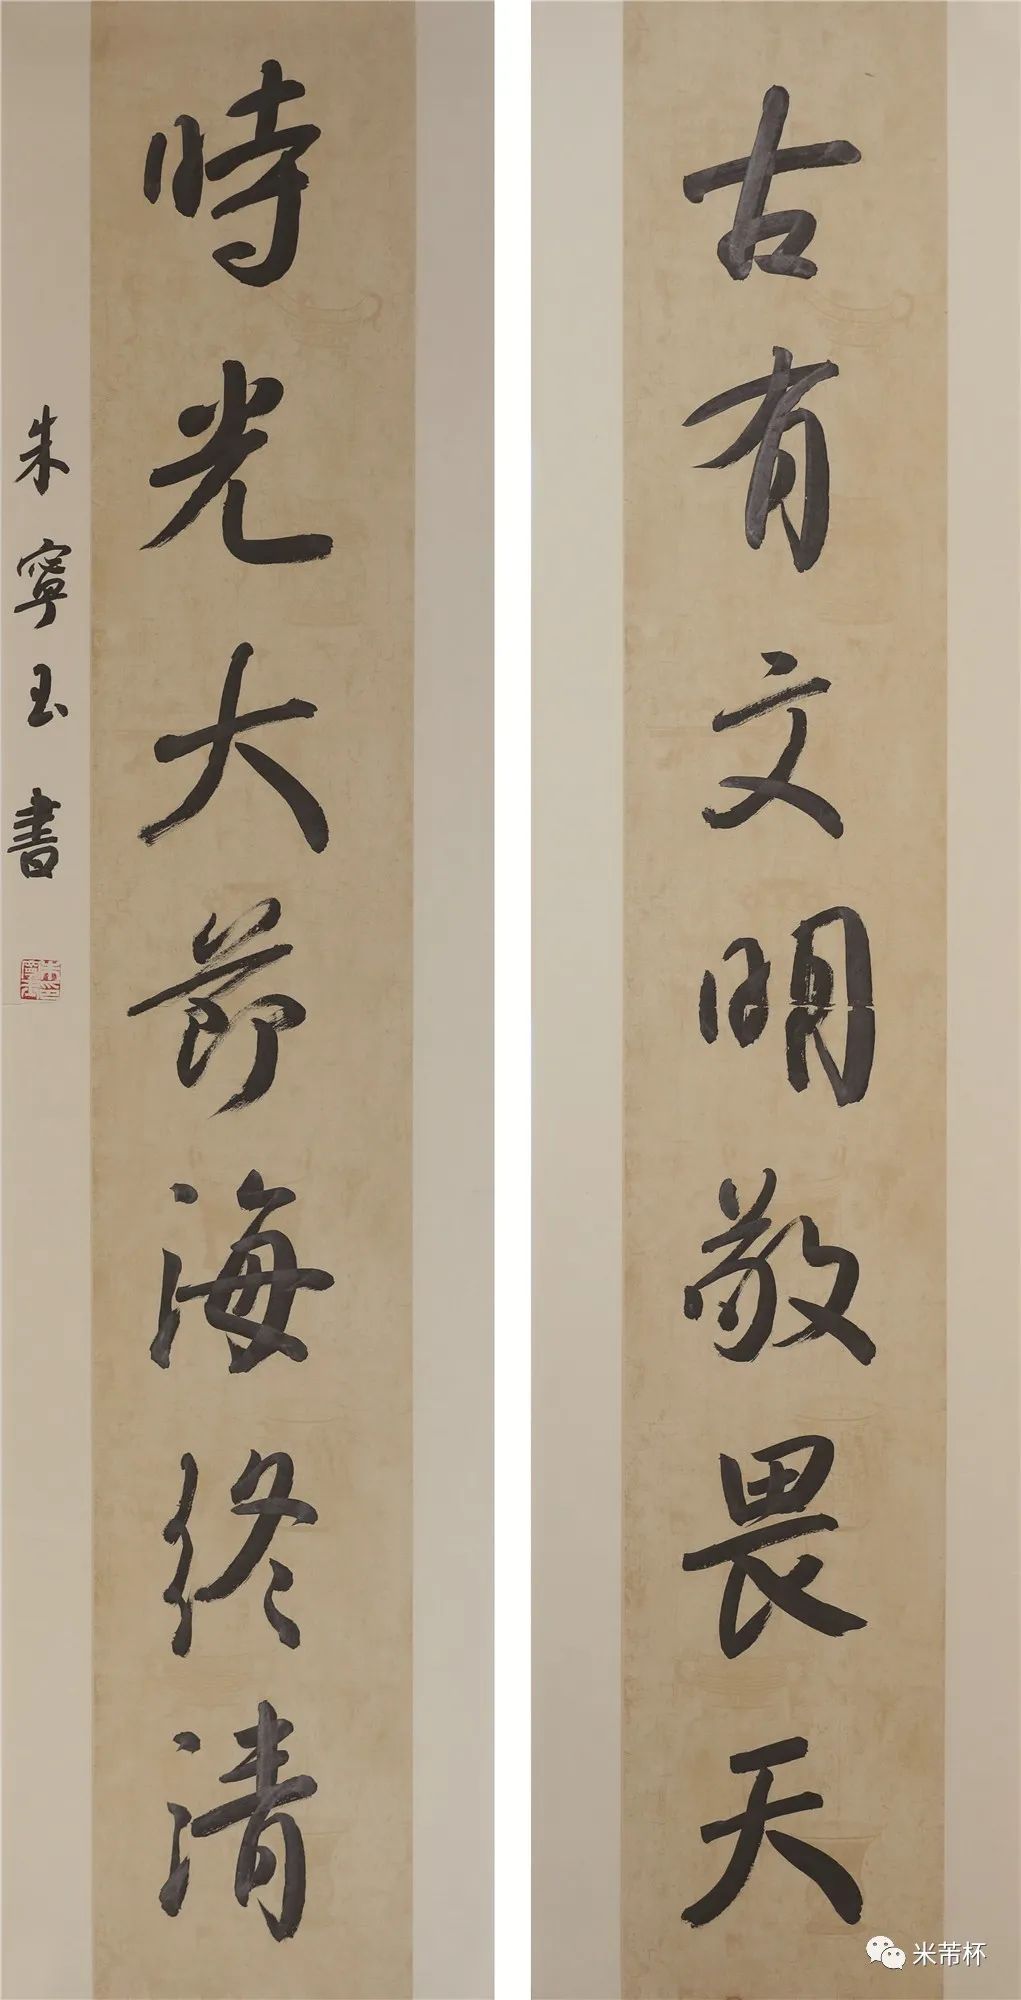 古有文明敬畏天
時光大節海終清
朱寧玉書
米芾杯